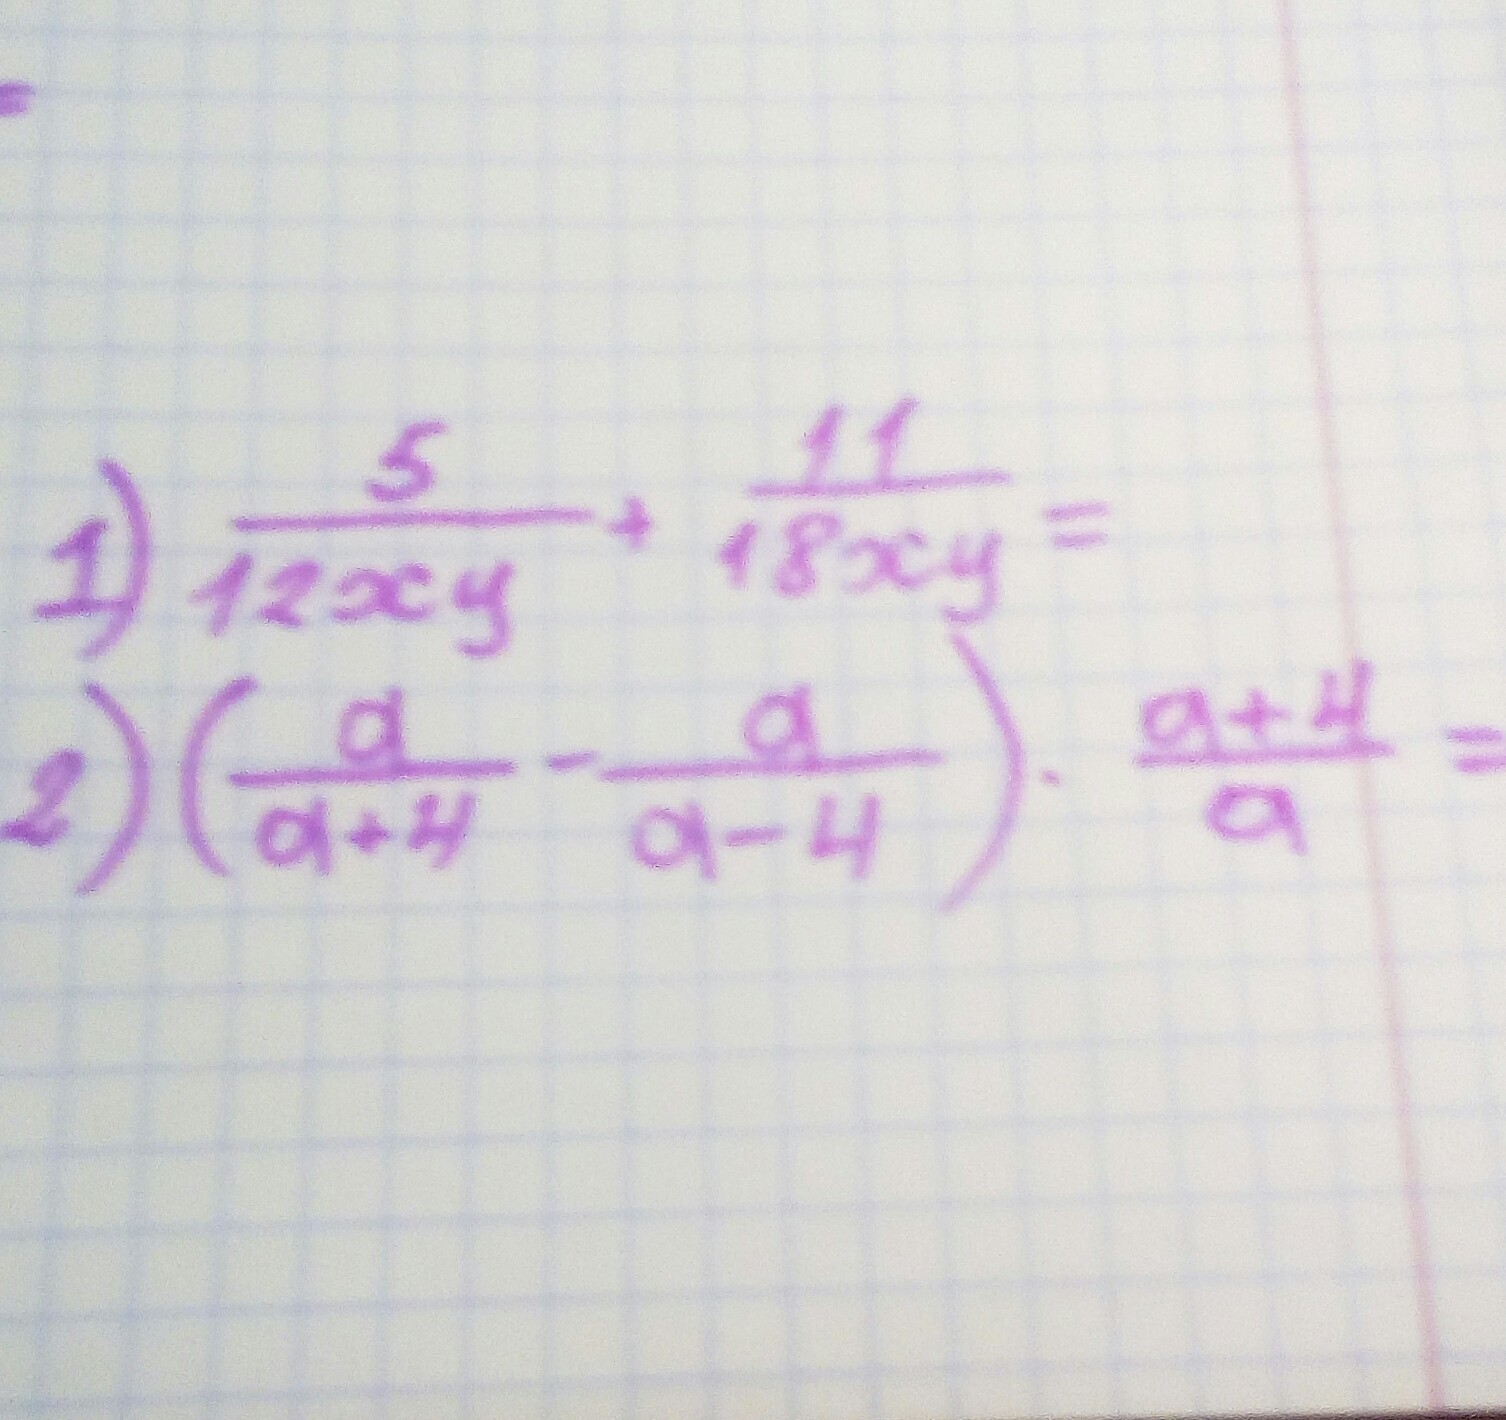 =
1) 5/12xy + 11/18xy =
2) (a/a+4 - a/a-4) · a+4/a =